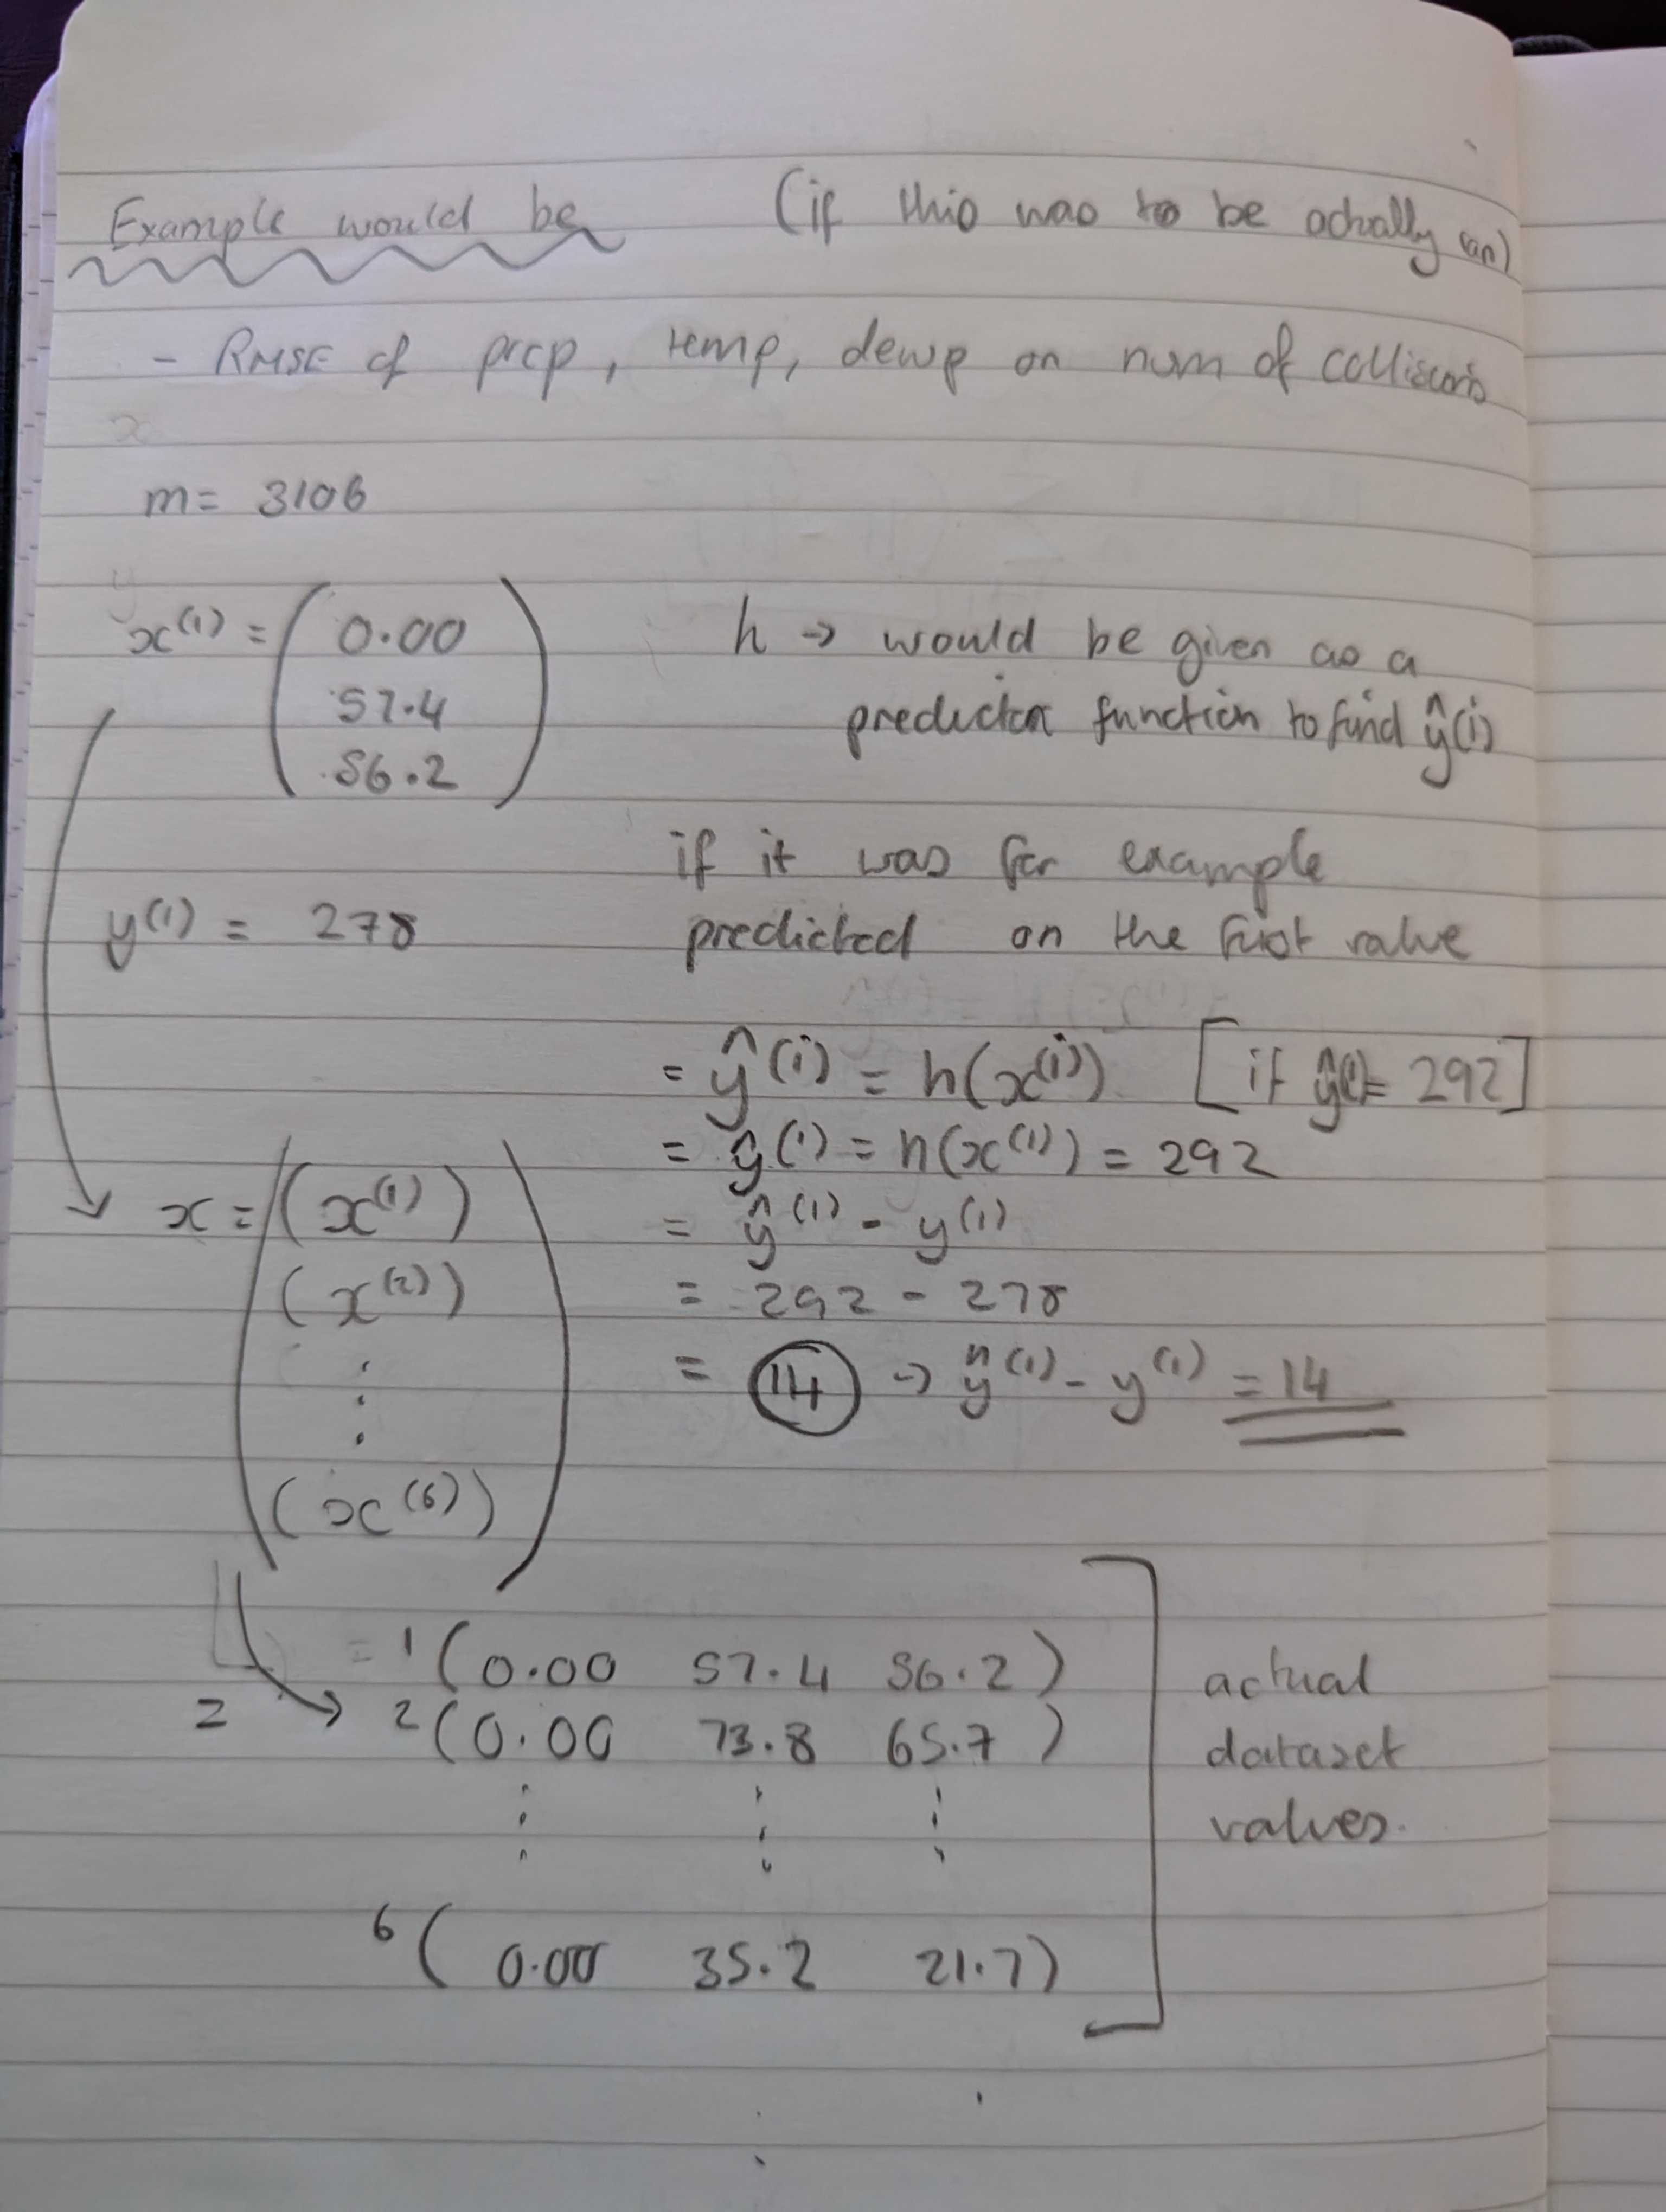 Example would be (if this was to be actually ran)
- RMSE of prcp, temp, dewp on num of collisions
x
m = 3106
y
x⁽¹⁾ = ( 0.00
57.4
56.2 )
h → would be given as a
predictor function to find ŷ(i)
if it was for example
y⁽¹⁾ = 278
predicted on the first value
= ŷ⁽ⁱ⁾ = h(x⁽ⁱ⁾) [if ŷ⁽¹⁾= 292]
= ŷ⁽¹⁾ = h(x⁽¹⁾) = 292
x = ( (x⁽¹⁾)
(x⁽²⁾)
⋮
(x⁽⁶⁾) )
= ŷ⁽¹⁾ - y⁽¹⁾
= 292 - 278
= 14 → ŷ⁽¹⁾ - y⁽¹⁾ = 14
= 1 (0.00 57.4 56.2)
= → 2 (0.00 73.8 65.7)
⋮ ⋮ ⋮
6 (0.00 35.2 21.7)
actual
dataset
values.